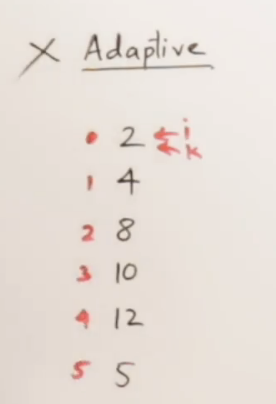 X Adaptive
0 2 ← i
← k
1 4
2 8
3 10
4 12
5 5